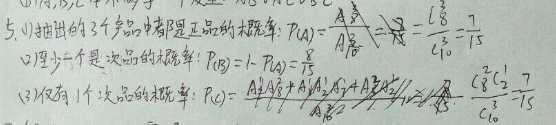 5、(1)抽出的3个产品中都是正品的概率: P(A) = = C₁₀³ = 7/15
(2)至少一个是次品的概率: P(B) = 1 - P(A) = 8/15
(3)仅有1个次品的概率: P(C) = C₈²C₂¹ / C₁₀³ = 7/15